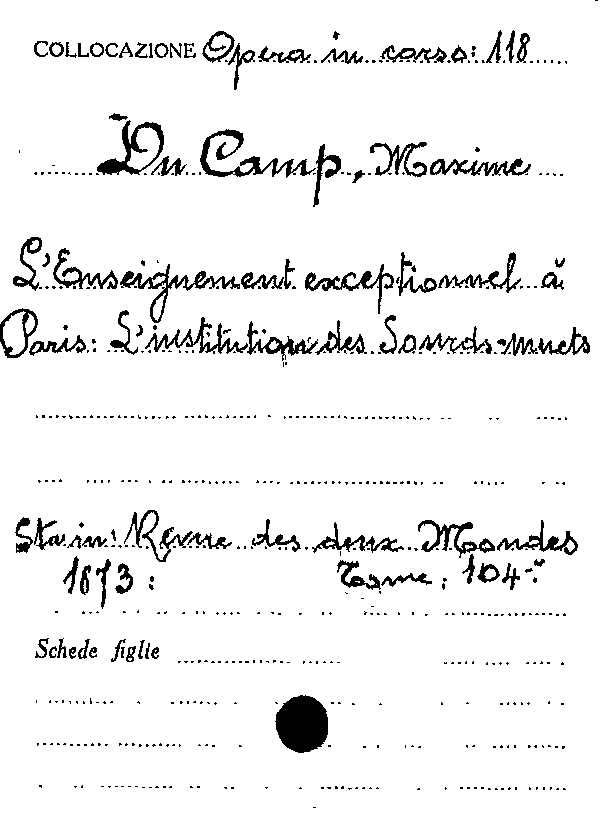 COLLOCAZIONE Opera in corso: 118
Du Camp, Maxime
L'Enseignement exceptionnel à
Paris: L'institution des Sourds-muets
Sta in: Revue des deux Mondes
1873: Tome: 104.
Schede figlie